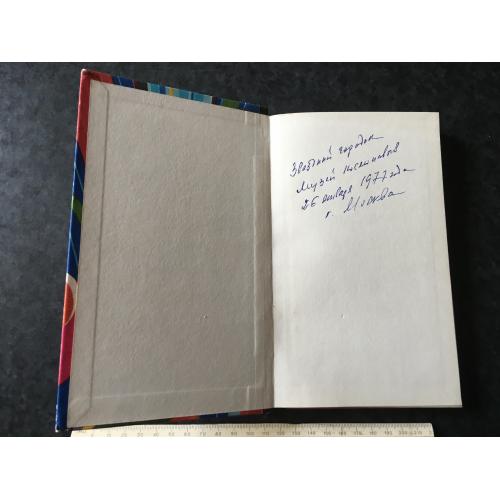 Звёздный городок
Музей космонавтов
26 января 1977 года
г. Москва